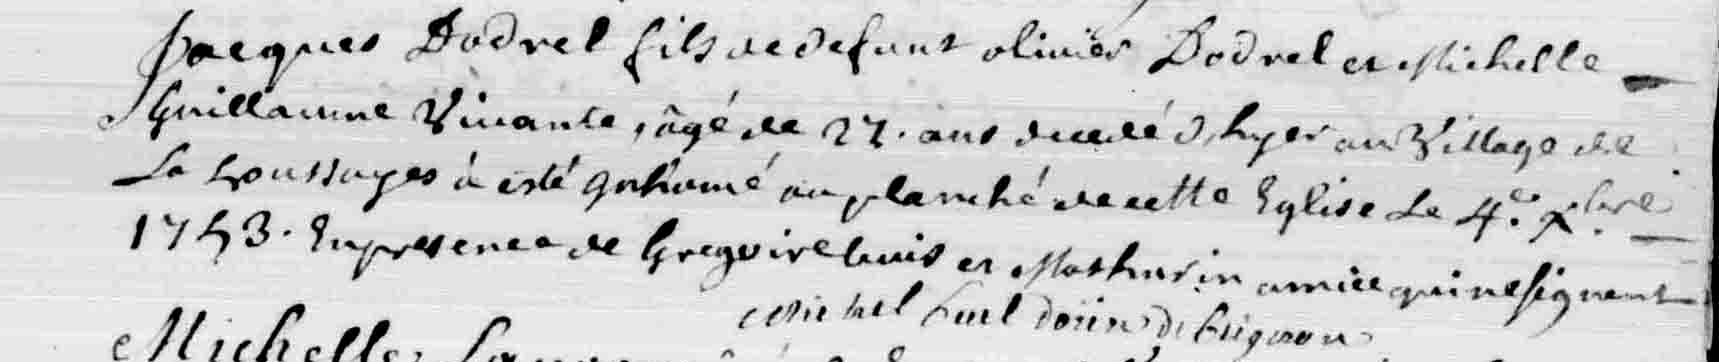 Jacques Dodrel fils de defunt olivier Dodrel et Michelle
Guillaume Vivante, âgé de 27. ans decedé d'hyer au Village de
La houssayes à esté inhumé au planché de cette Eglise Le 4e. Xbre
1743. En presence de Gregoire et Mathurin amice qui ne signent
Michel
Michelle